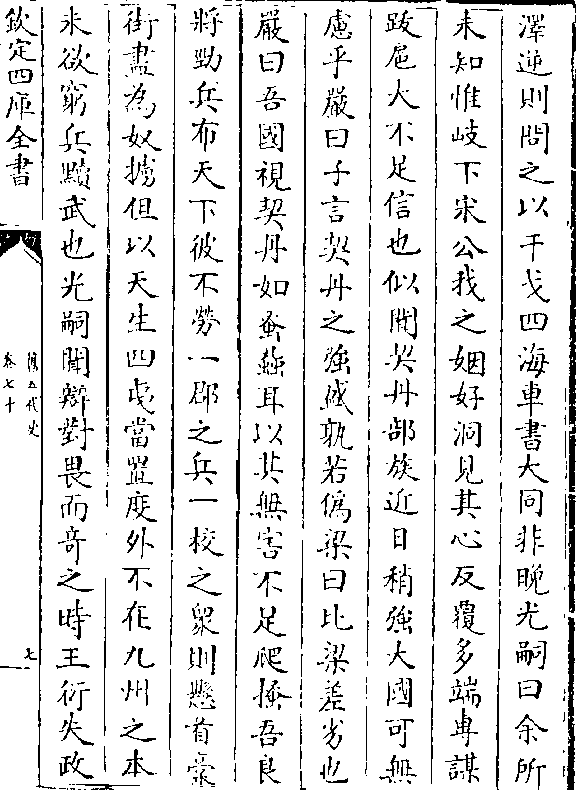 澤逆則問之以干戈四海車書大同非晚光嗣曰余所
未知惟岐下宋公我之姻好洞見其心反覆多端專謀
跋扈大不足信也似聞契丹部族近日稍強大國可無
慮乎嚴曰子言契丹之強盛孰若偽梁曰比梁差劣也
嚴曰吾國視契丹如蚤蝨耳以其無害不足爬搔吾良
將勁兵布天下彼不勞一郡之兵一校之衆則懸首藁
街盡為奴擄但以天生四夷當置度外不在九州之本
未欲窮兵黷武也光嗣聞辯對畏而奇之時王衍失政
欽定四庫全書
舊五代史
卷七十
七